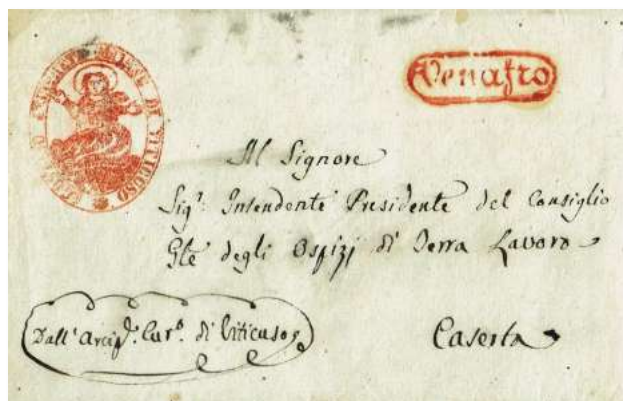 DI VITICUSO
Venafro
Al Signore
Sigr. Intendente Presidente del Consiglio
Gle degli Ospizj di Terra Lavoro
Dall'Arcip.e Cur.o di Viticuso
Caserta